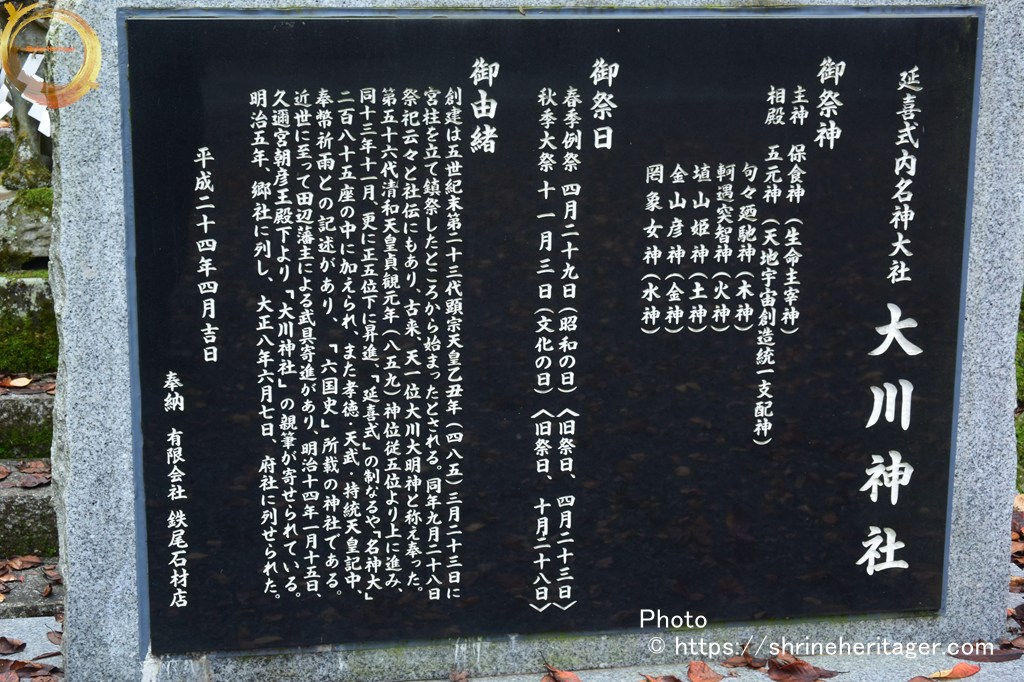 延喜式内名神大社 大川神社
御祭神
主神 保食神(生命主宰神)
相殿 五元神(天地宇宙創造統一支配神)
句々廼馳神(木神)
軻遇突智神(火神)
埴山姫神(土神)
金山彦神(金神)
罔象女神(水神)
御祭日
春季例祭 四月二十九日(昭和の日)〈旧祭日、四月二十三日〉
秋季大祭 十一月三日(文化の日)〈旧祭日、十月二十八日〉
御由緒
創建は五世紀末第二十三代顕宗天皇乙丑年(四八五)三月二十三日に
宮柱を立て鎮祭したところから始まったとされる。同年九月二十八日
祭祀云々と社伝にもあり、古来、天一位大川大明神と称え奉った。
第五十六代清和天皇貞観元年(八五九)神位従五位より上に進み、
同十三年十一月、更に正五位下に昇進、「延喜式」の制なるや「名神大」
二百八十五座の中に加えられ、また孝徳・天武・持統天皇記中、
奉幣祈雨との記述があり、「六国史」所載の神社である。
近世に至って田辺藩主による武具寄進があり、明治十四年一月十五日、
久邇宮朝彦王殿下より「大川神社」の親筆が寄せられている。
明治五年、郷社に列し、大正八年六月七日、府社に列せられた。
平成二十四年四月吉日
奉納 有限会社 鉄尾石材店
Photo
© https://shrineheritager.com